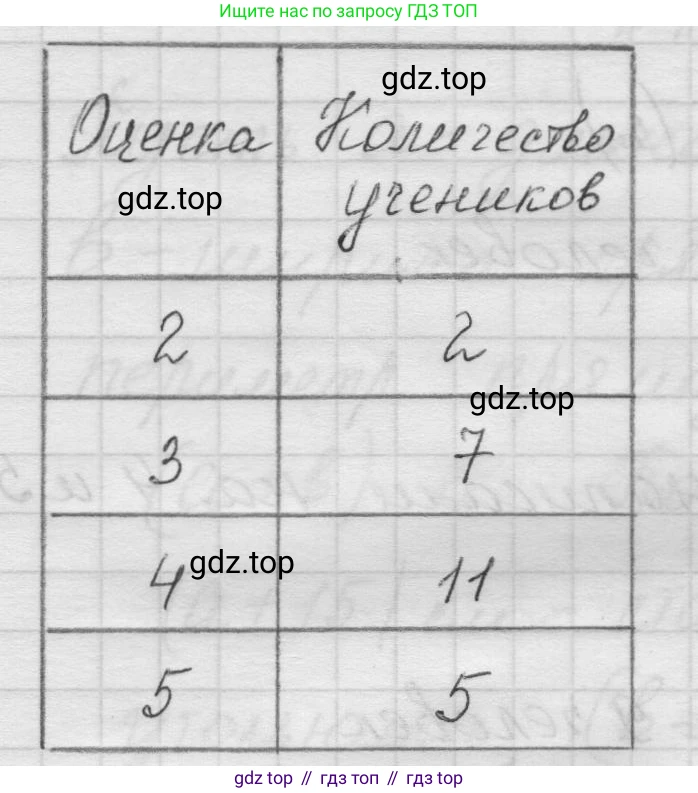 Ищите нас по запросу ГДЗ ТОП
gdz.top
Оценка Количество
gdz.top учеников
2 2
gdz.top
3 7
4 gdz.top 11
5 5
gdz top // гдз топ // gdz.top